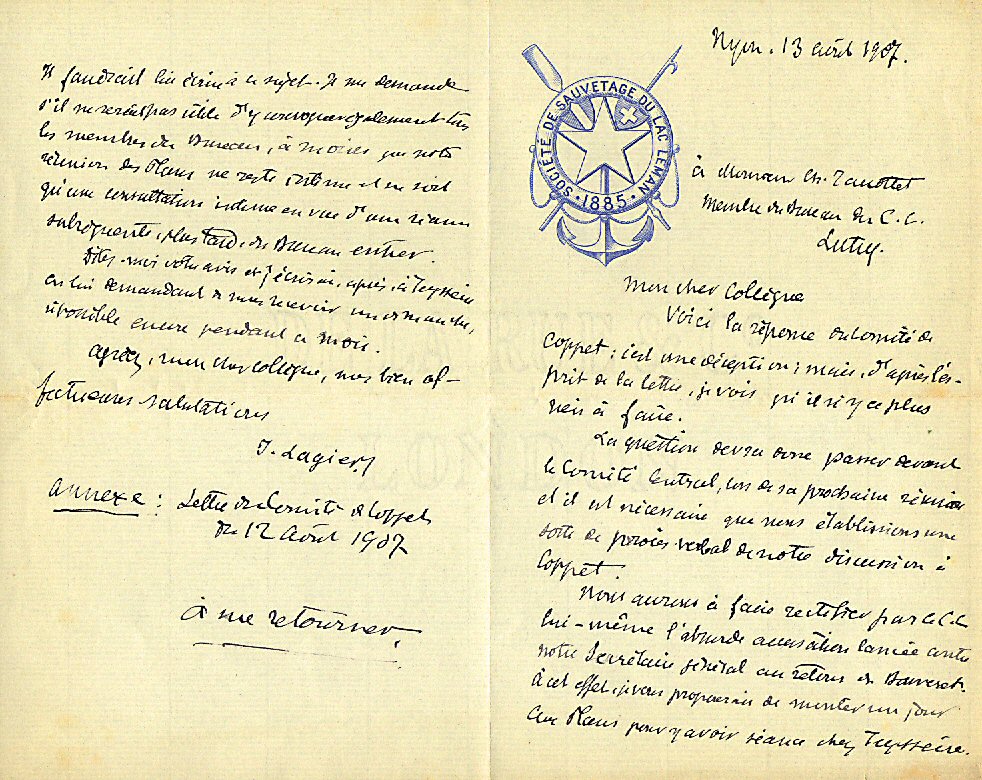 Nyon. 13 août 1907.
SOCIÉTÉ DE SAUVETAGE DU LAC LÉMAN
· 1885 ·
à Monsieur Ch.
Membre du Bureau du C. C.
Lutry.
Mon cher Collègue
Voici la réponse du Comité de
Coppet ; c'est une déception ; mais, d'après l'es-
prit de la lettre, je vois qu'il n'y a plus
rien à faire.
La question devra donc passer devant
le Comité Central, lors de sa prochaine réunion
et il est nécessaire que nous établissions une
sorte de procès-verbal de notre discussion à
Coppet.
Nous aurons à faire rectifier par le C. C.
lui-même l'absurde accusation lancée contre
notre Secrétaire général au retour du Bouveret.
À cet effet, je vous proposerais de monter un jour
aux Plans pour y avoir séance chez Teysseire.
Il faudrait lui écrire à ce sujet. Je me demande
s'il ne serait pas utile d'y convoquer également tous
les membres du Bureau, à moins que notre
réunion des Plans ne reste intime et ne soit
qu'une consultation intime en vue d'une séance
subséquente, plus tard, du Bureau entier.
Dites-moi votre avis et j'écrirai, après, à Teysseire
en lui demandant de nous recevoir un dimanche,
si possible encore pendant ce mois.
Agréez, mon cher collègue, mes bien af-
fectueuses salutations
J. Lagier
Annexe : Lettre du Comité de Coppet
du 12 Août 1907
à me retourner.